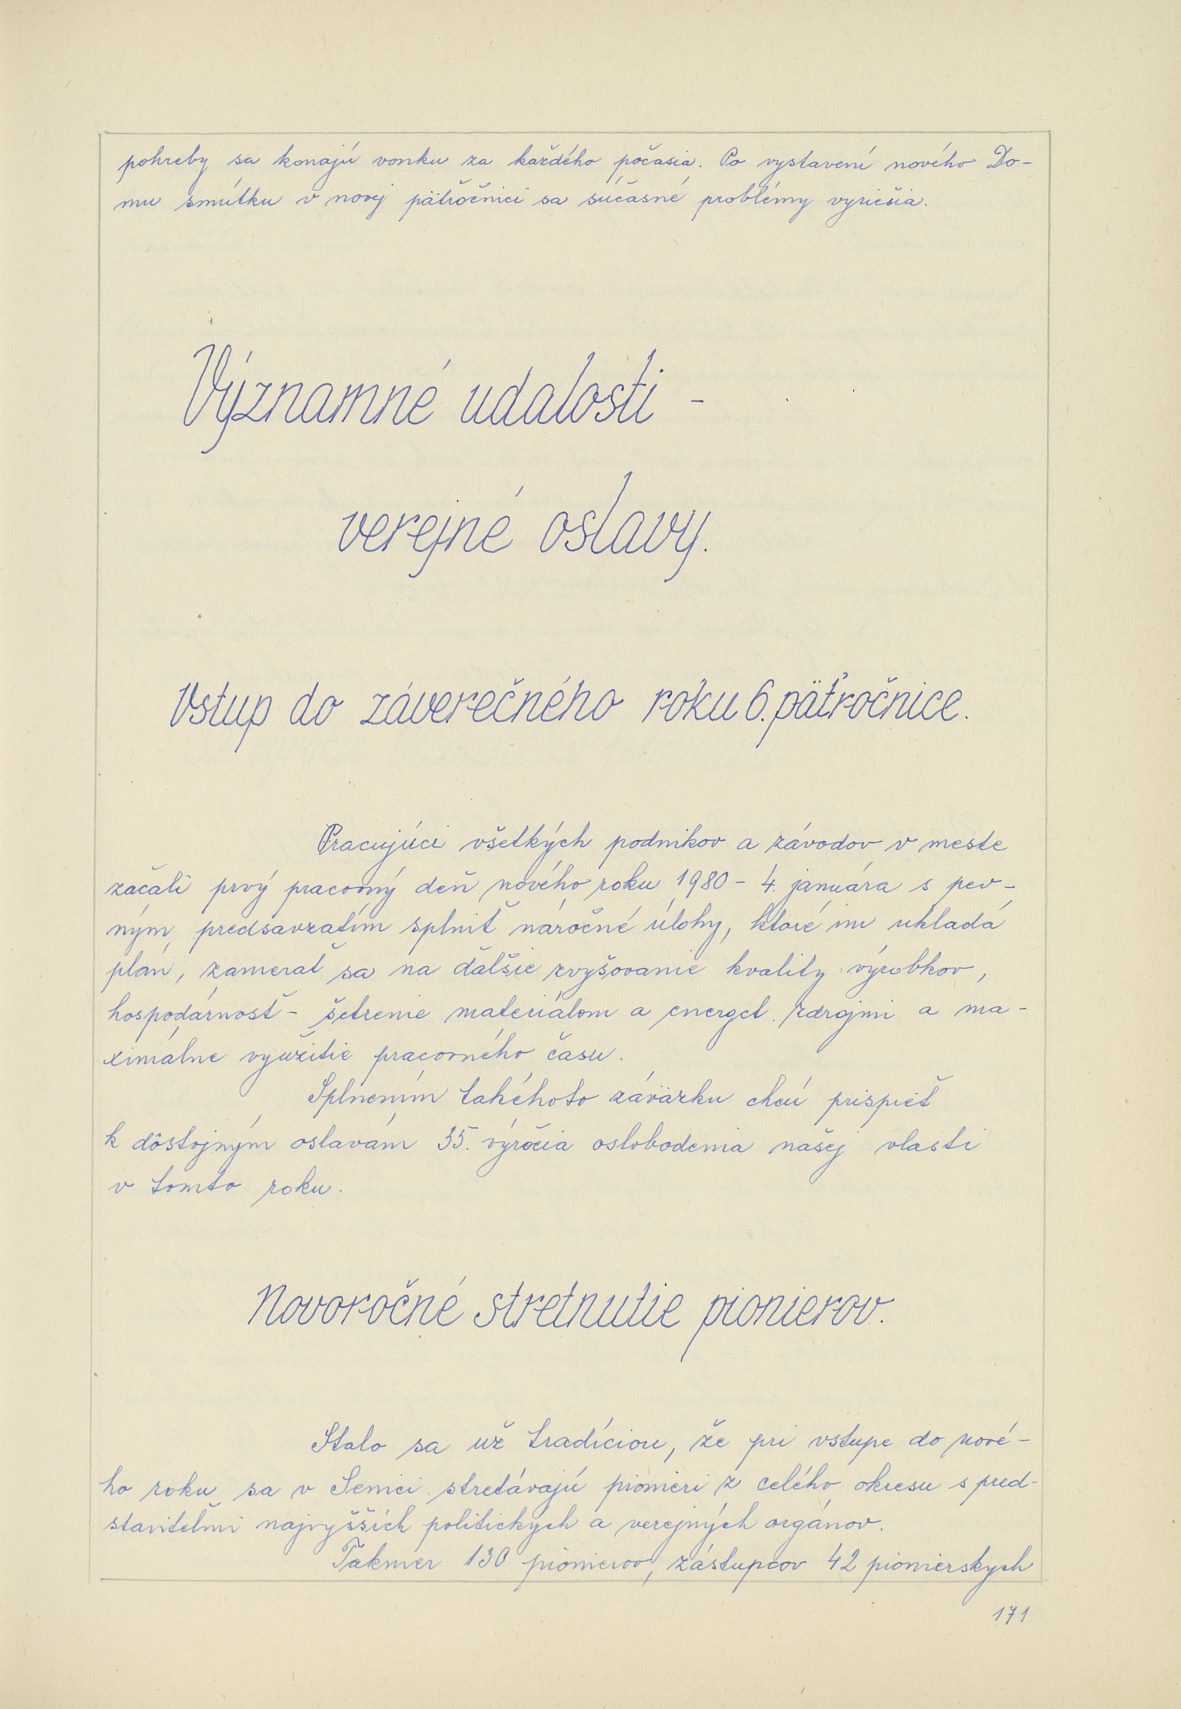 pohreby sa konajú vonku za každého počasia. Po vystavení nového Do-
mu smútku v novej päťročnici sa súčasné problémy vyriešia.
Významné udalosti -
verejné oslavy.
Vstup do záverečného roku 6. päťročnice.
Pracujúci všetkých podnikov a závodov v meste
začali prvý pracovný deň nového roku 1980 - 4. januára s pev-
ným predsavzatím splniť náročné úlohy, ktoré im ukladá
plán, zamerať sa na ďalšie zvyšovanie kvality výrobkov,
hospodárnosť - šetrenie materiálom a energet. zdrojmi a ma-
ximálne využitie pracovného času.
Splnením takéhoto záväzku chcú prispieť
k dôstojným oslavám 35. výročia oslobodenia našej vlasti
v tomto roku.
Novoročné stretnutie pionierov.
Stalo sa už tradíciou, že pri vstupe do nové-
ho roku sa v Senici stretávajú pionieri z celého okresu s pred-
staviteľmi najvyšších politických a verejných orgánov.
Takmer 130 pionierov, zástupcov 42 pionierskych
171